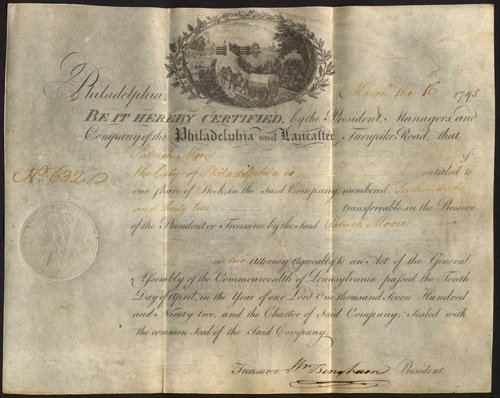 Philadelphia March the 16th 1795
BE IT HEREBY CERTIFIED, by the President, Managers and
Company of the Philadelphia and Lancaster Turnpike Road, that
Patrick Moore of
No. 632 the City of Philadelphia is entitled to
one share of Stock in the Said Company, numbered Six hundred
and thirty two transferrable in the Presence
of the President or Treasurer, by the Said Patrick Moore
or his Attorney Agreeably to an Act of the General
Assembly of the Commonwealth of Pennsylvania, passed the Tenth
Day of April, in the Year of our Lord One thousand Seven Hundred
and Ninety two, and the Charter of Said Company: Sealed with
the common Seal of the Said Company
Treasurer. Wm Bingham President.